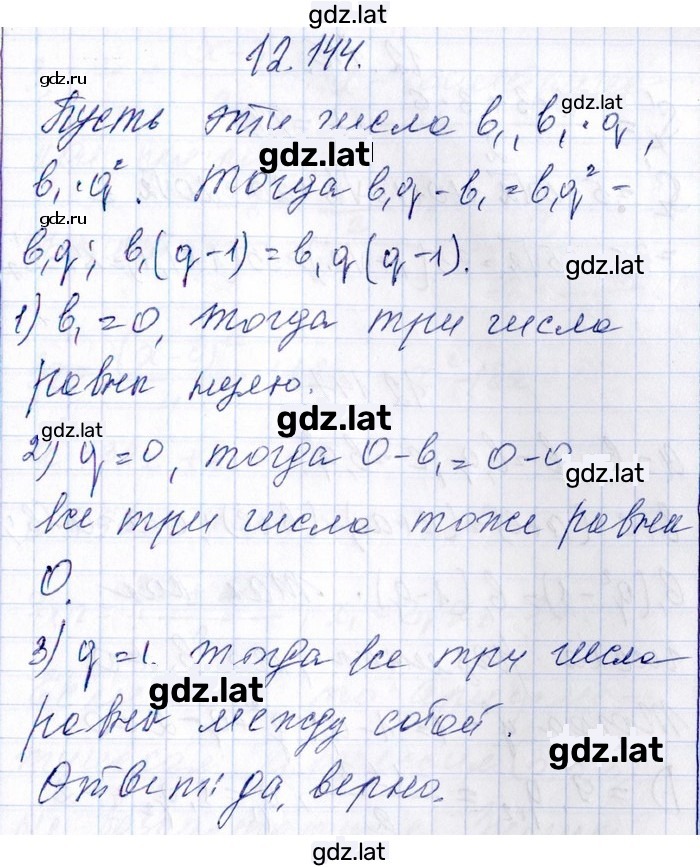 gdz.lat
12.144.
gdz.ru
Пусть эти числа b₁, b₁·q,
gdz.lat
gdz.lat
b₁·q². Тогда b₁q - b₁ = b₁q² -
gdz.ru
b₁q; b₁(q-1) = b₁q(q-1).
gdz.lat
1) b₁ = 0, тогда три числа
равны нулю.
gdz.lat
gdz.lat
2) q = 0, тогда 0 - b₁ = 0 - 0
gdz.lat
все три числа тоже равны
0.
3) q = 1. тогда все три числа
gdz.lat
равны между собой.
gdz.lat
Ответ: да, верно.
gdz.lat